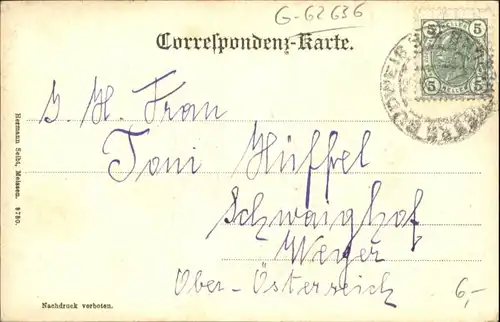 G-62636
Correspondenz-Karte.
5 HELLER 5
5 HELLER 5
Frau
Toni Hüffel
Schwaighof
Weyer
Ober-Österreich
6,-
Hermann Seibt, Meissen. 8760.
Nachdruck verboten.